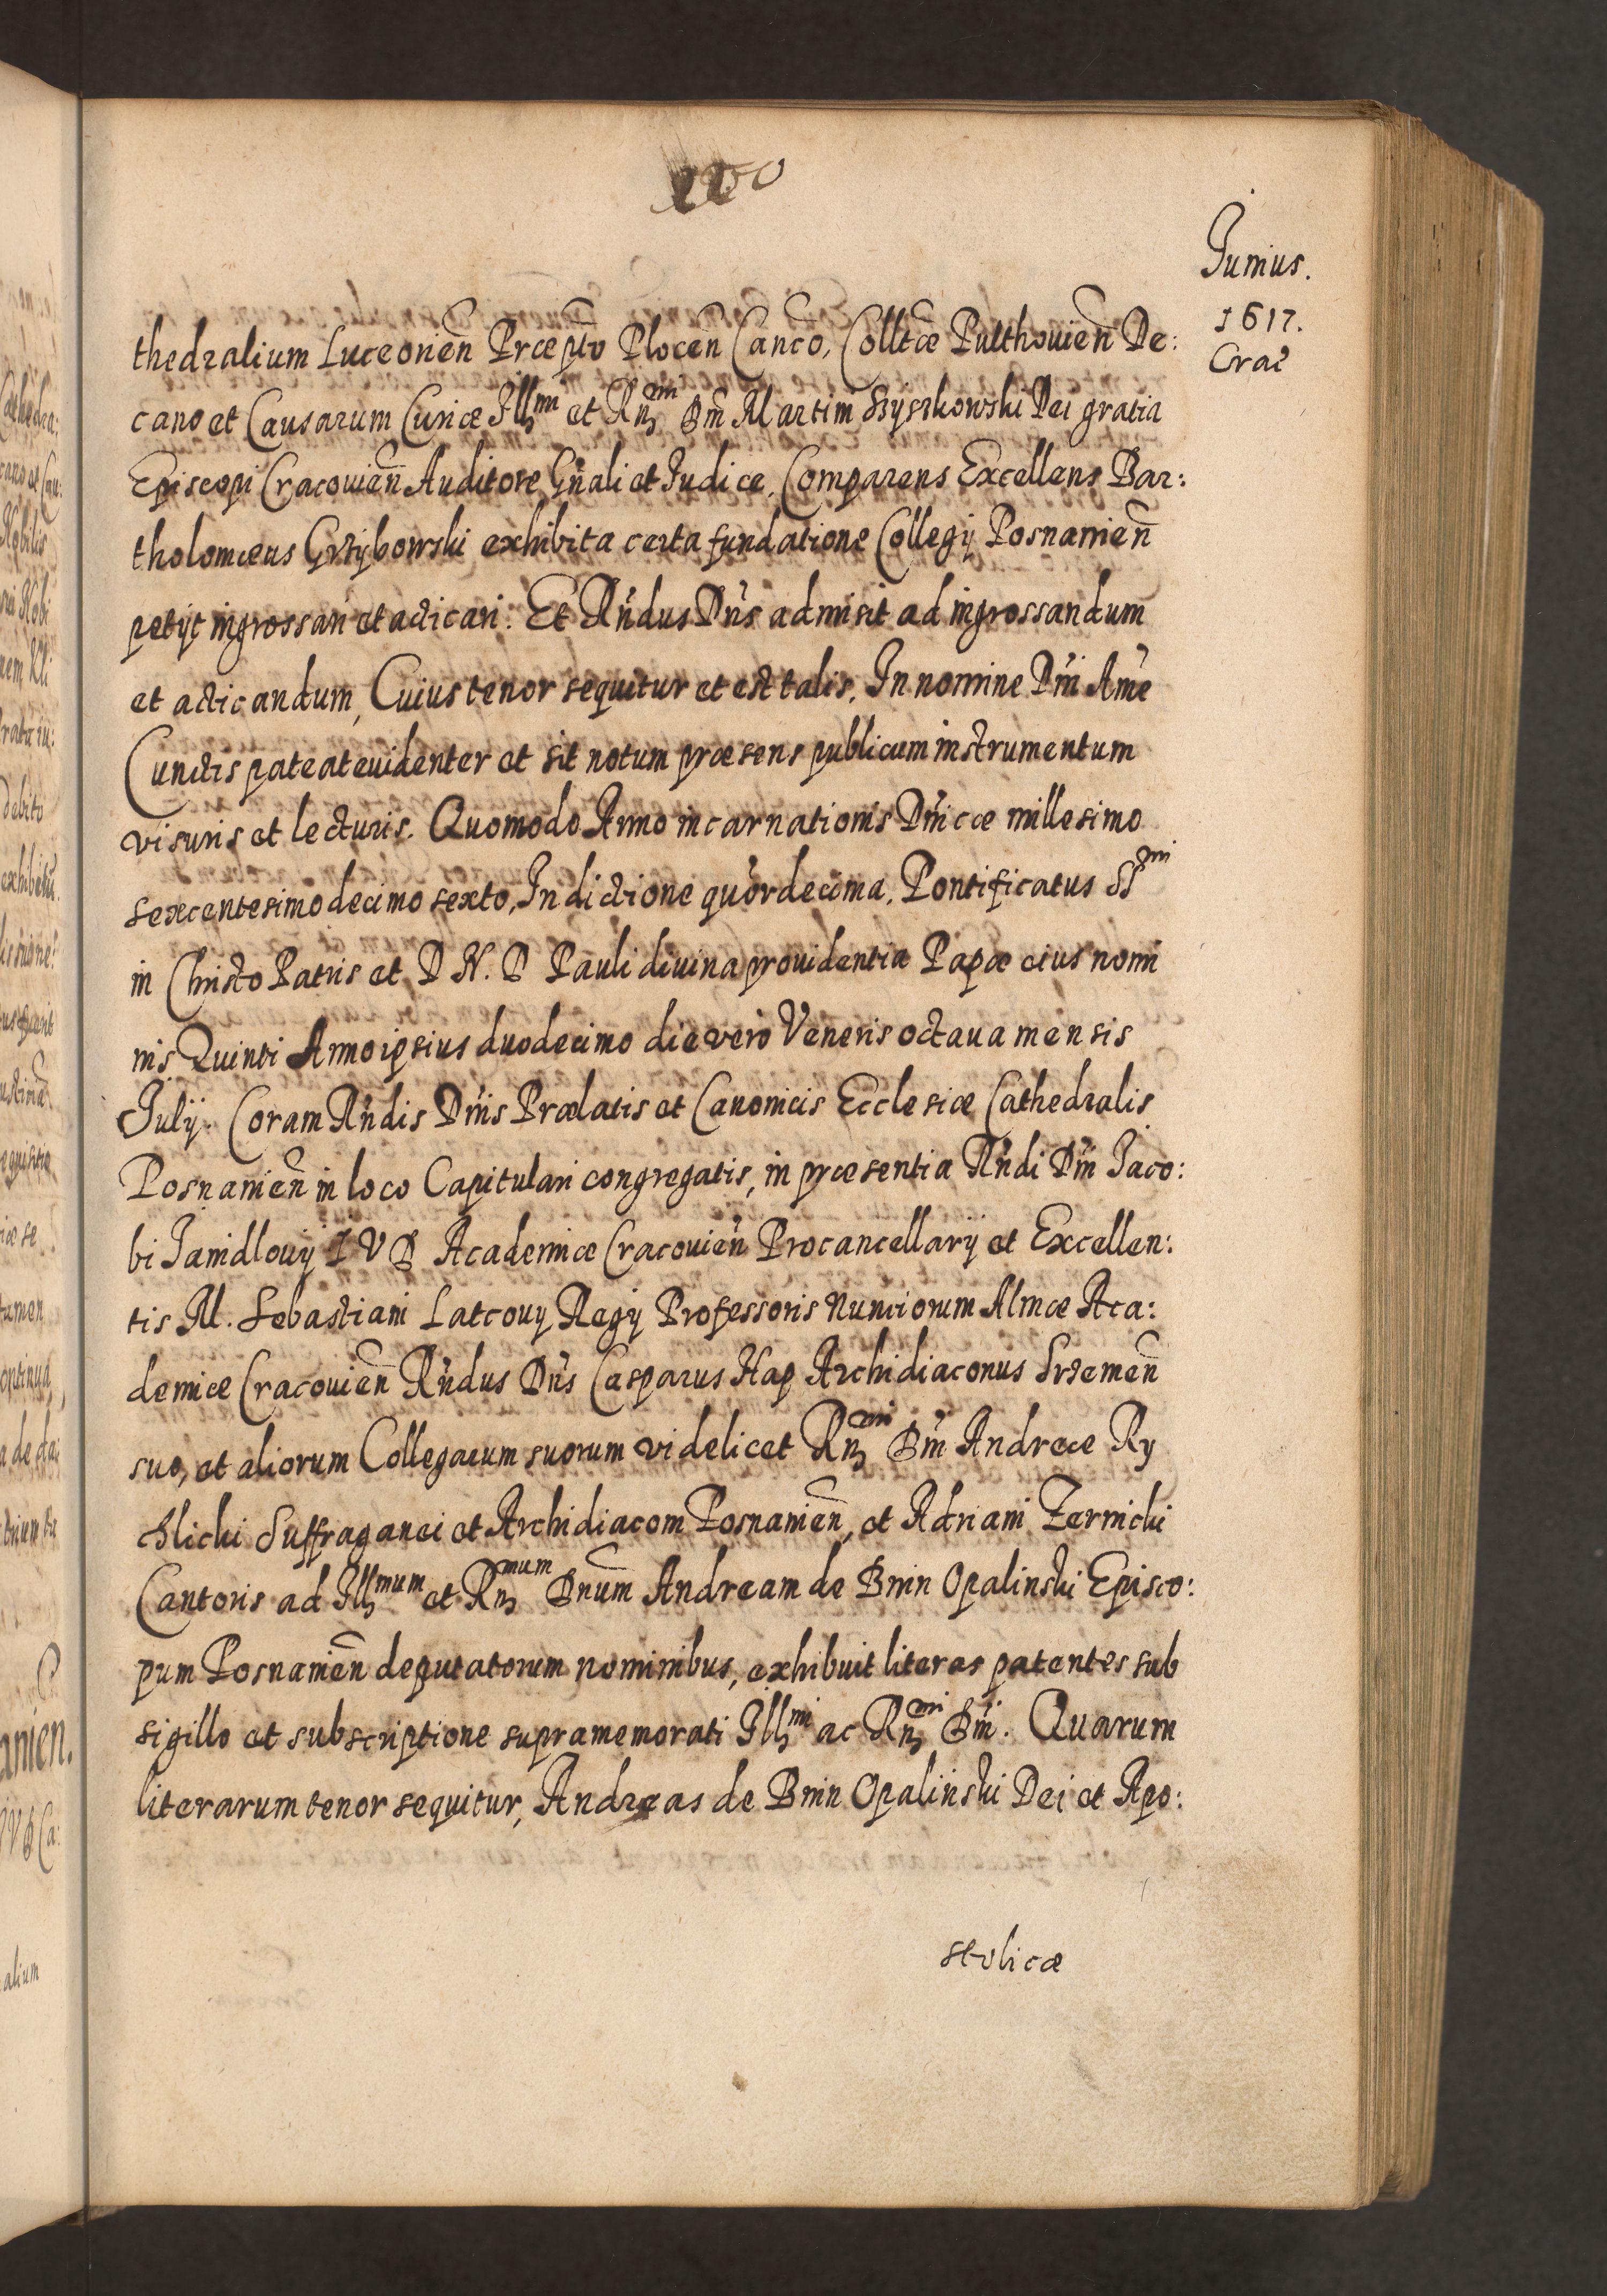 Junius.
1617.
Crac̃
thedralium Luceorień Præpt̃o Płoceń Canc̃o, Colltæ Pulthouień De:
cano et Causarum Curiæ Illmi et Rmi Dm̃ Martini Szyszkowski Dei gratia
Episcopi Cracouień Auditore Gn̄ali et Judice, Comparens Excellens Bar:
tholomæus Grzÿbowski exhibita certa fundatione Collegÿ Posnanień
petÿt ingrossari et acticari. Et Rn̄dus Dn̄s admisit ad ingrossandum
et acticandum, Cuius tenor sequitur et est talis. In nomine Dn̄i Ame
Cunctis pateat euidenter et sit notum præsens publicum instrumentum
visuris et lecturis. Quomodo Anno incarnationis Dn̄icæ millesimo
sexcentesimo decimo sexto, Indictione qu̓ordecima, Pontificatus SSmi
in Christo Patris et D N. D Pauli diuina prouidentia Papæ eius nomi
nis Quinti Anno ipsius duodecimo die vero Veneris octaua mensis
Julÿ. Coram Rn̄dis Dn̄is Prælatis et Canonicis Ecclesiæ Cathedralis
Posnanień in loco Capitulari congregatis, in præsentia Rn̄di Dn̄i Jaco:
bi Janidlouÿ I V D Academiæ Cracouień Procancellarÿ et Excellen:
tis M. Sebastiani Latcouy Regÿ Professoris Nunciorum Almæ Aca:
demiæ Cracouień Rn̄dus Dn̄s Casparus Hap Archidiaconus Srzemeń
suo, et aliorum Collegarum suorum videlicet Rmi Dm̃ Andreæ Ry
chlicki Suffraganei et Archidiaconi Posnanień, et Adriani Zernicki
Cantoris ad Illmum et Rmum Dnum Andream de Bnin Opalinski Episco:
pum Posnanień deputatorum nominibus, exhibuit literas patentes sub
sigillo et subscriptione supramemorati Illmi ac Rmi Dm̃. Quarum
literarum tenor sequitur, Andreas de Bnin Opalinski Dei et Apo:
stolicæ